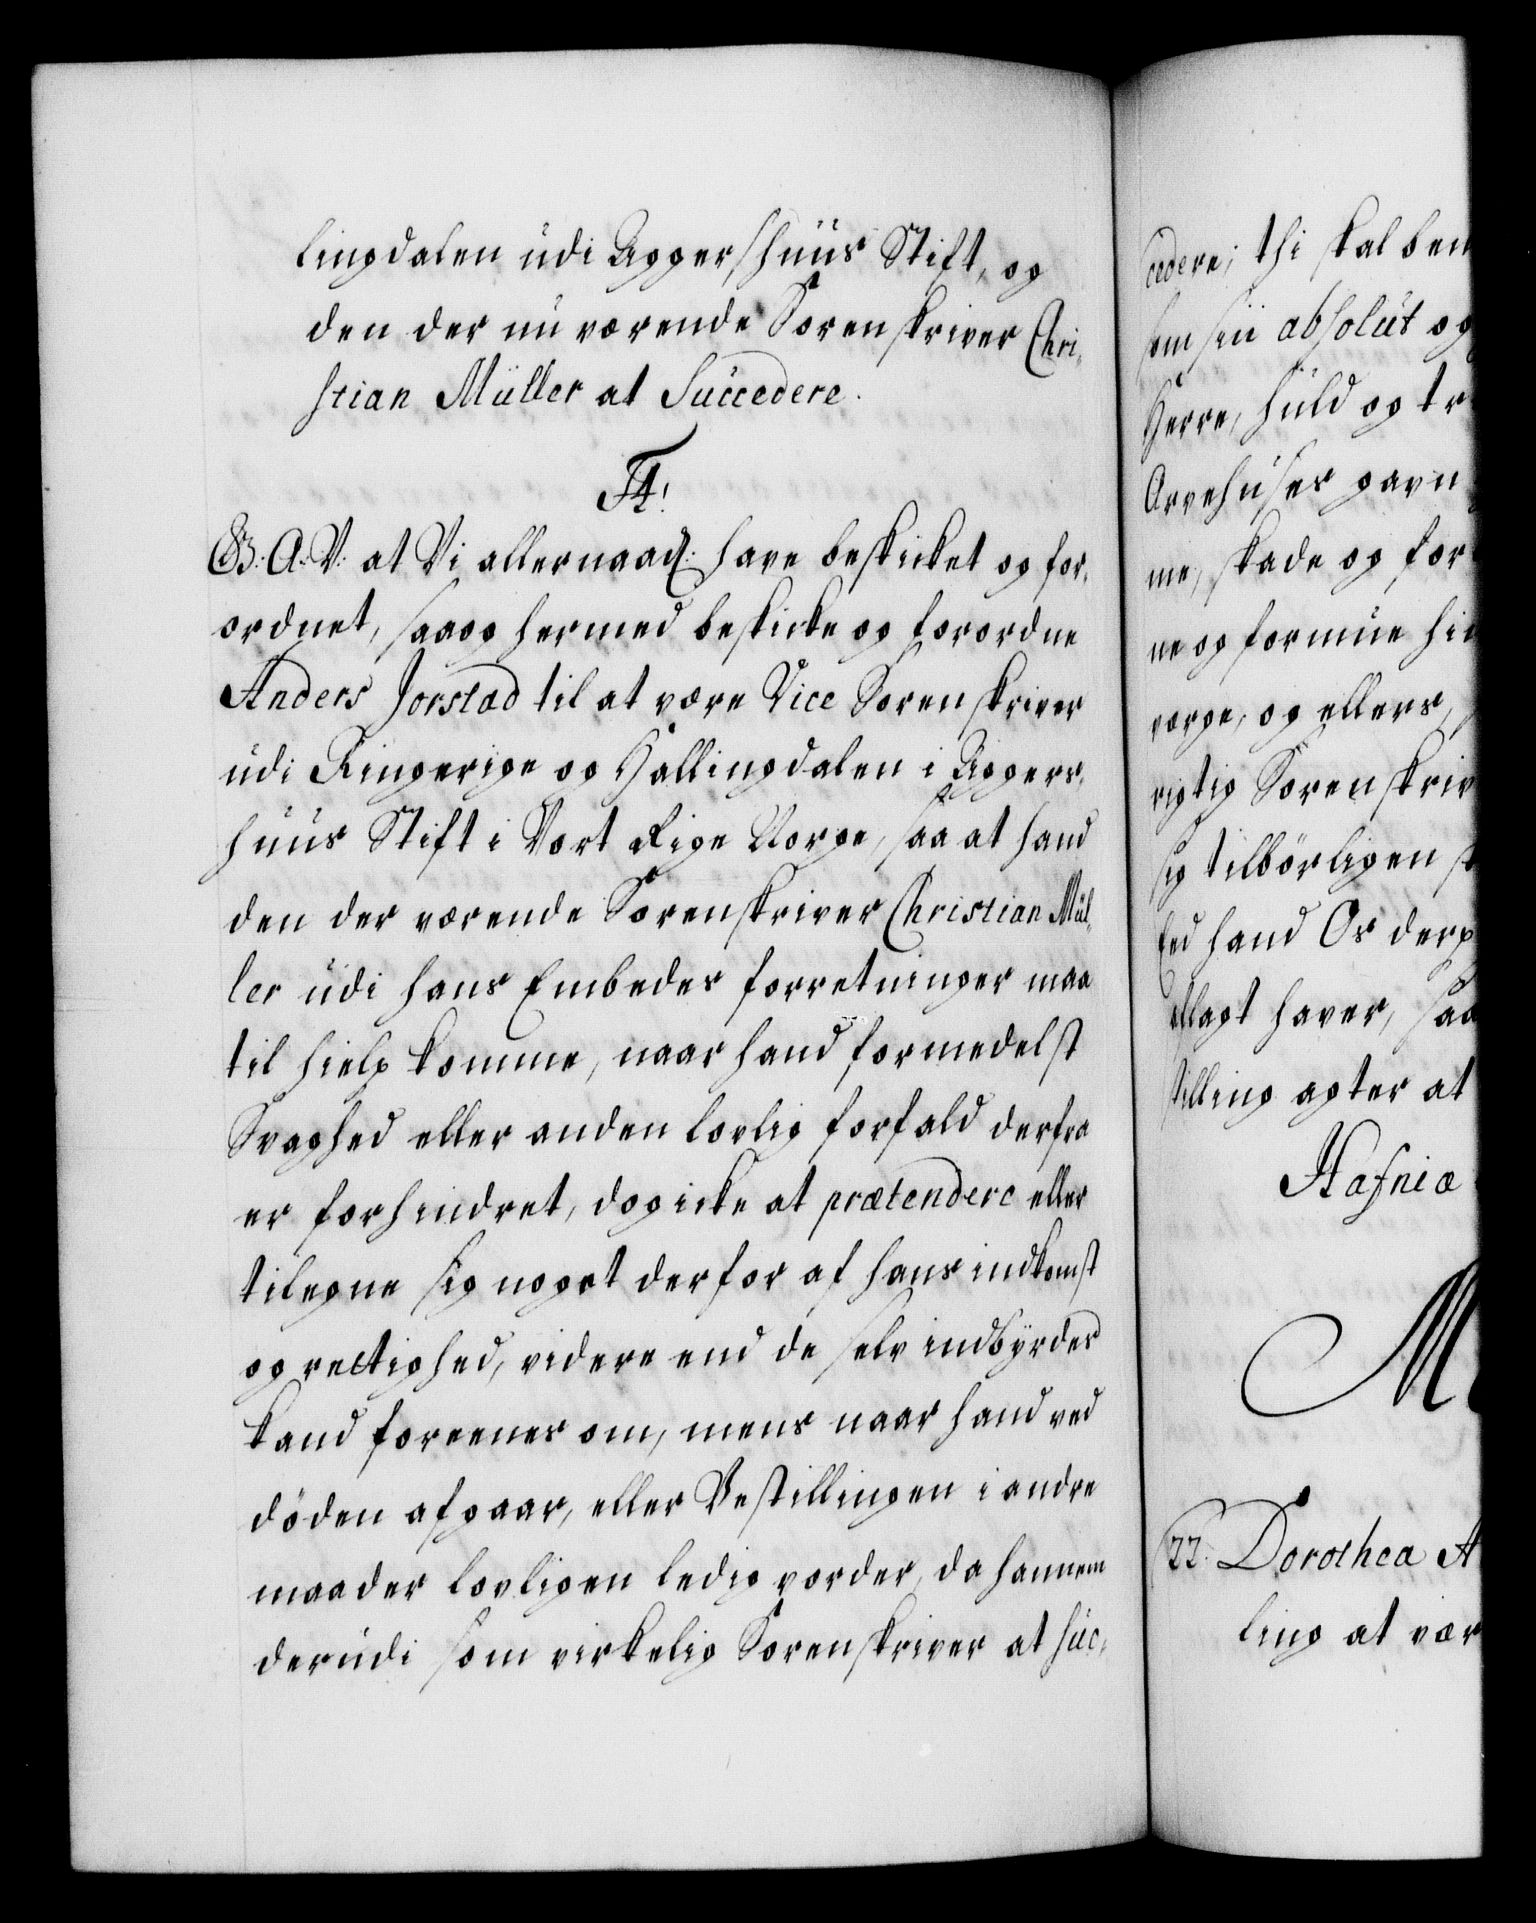 lingdalen udi Aggershuus Stift, og
den der nu værende Sorenskriver Chri-
stian Müller at Succedere.
F4!
G. A. V: at Vi allernaad: have beskicket og for-
ordnet, saa og hermed beskicke og forordne
Anders Jorstad til at være Vice Sorenskriver
udi Ringerige og Hallingdalen i Aggers-
huus Stift i Vort Rige Norge, saa at hand
den der værende Sorenskriver Christian Mül-
ler udi hans Embedes forretninger maa
til hielp komme, naar hand formedelst
Svaghed eller anden lovlig forfald derfra
er forhindret, dog icke at prætendere eller
tilegne sig noget derfor af hans indkomst
og rectighed, videre end de selv indbyrdes
kand foreenes om, mens naar hand ved
döden afgaar, eller Bestillingen i andre
maader lovligen ledig vorder, da hannem
derudi som virkelig Sorenskriver at suc-
cedere; thi skal ben
som sin absolut og
Herre, huld og tr
Arvehuses gavn
me, skade og for
ne og formue hin
værge, og ellers,
rigtig Sorenskriv
sig tilbörligen st
Eed hand Os derp
aflagt haver, saa
stilling agter at
Hafniæ
M
22. Dorothea A
ling at vær